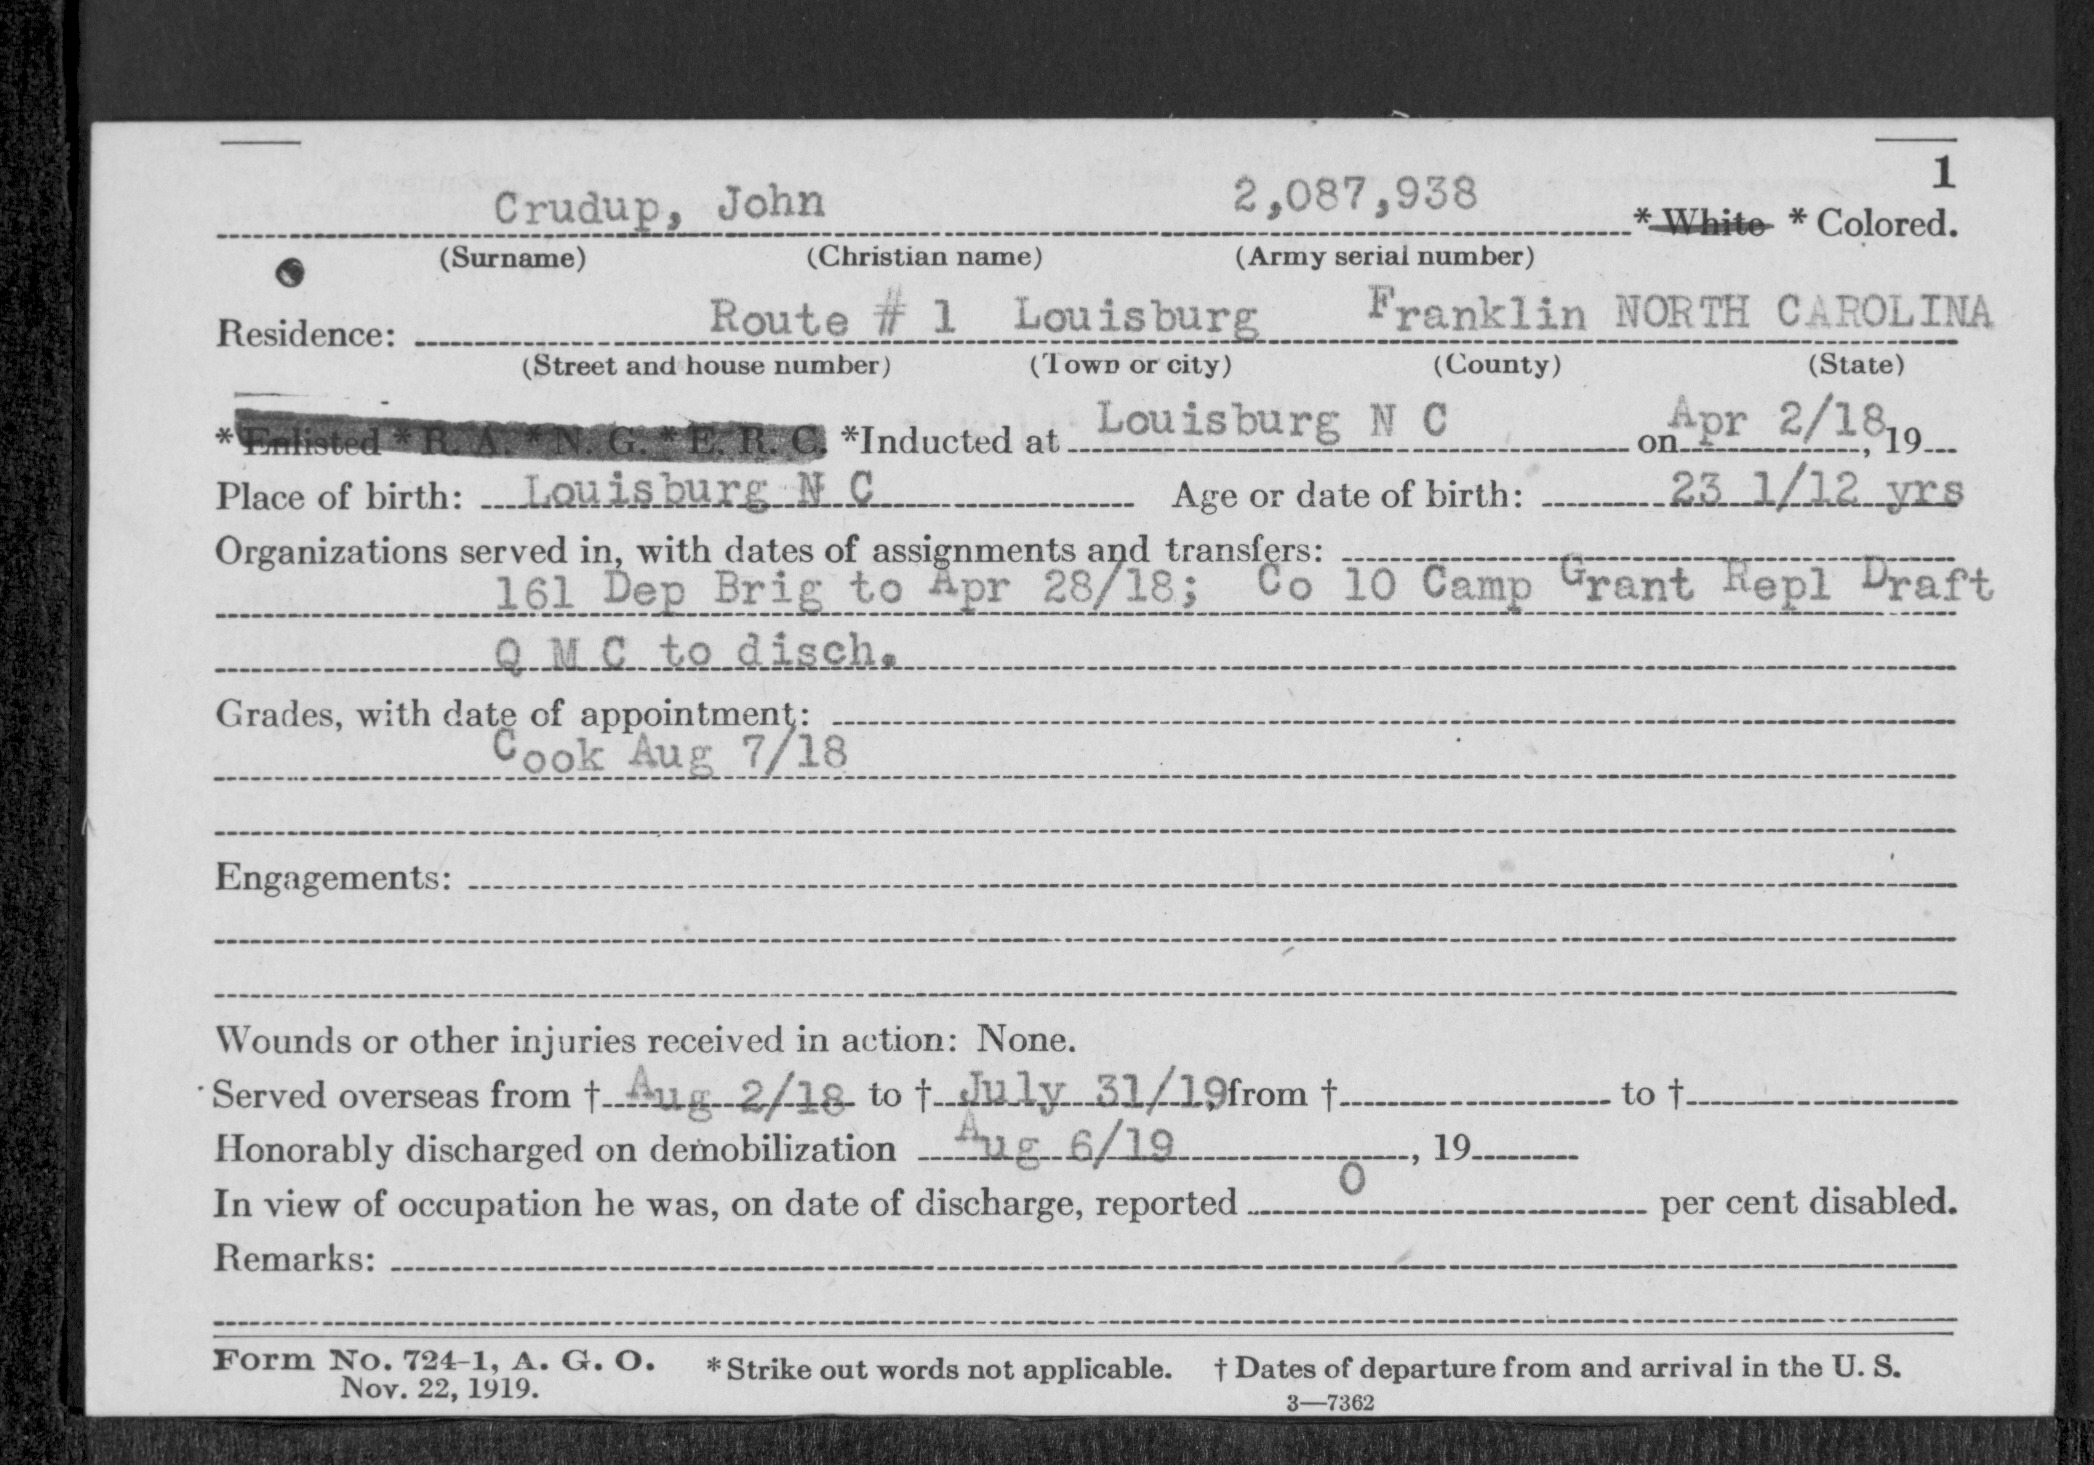 1
Crudup, John 2,087,938 * White * Colored.
(Surname) (Christian name) (Army serial number)
Residence: Route # 1 Louisburg Franklin NORTH CAROLINA
(Street and house number) (Town or city) (County) (State)
* Enlisted * R. A. * N. G. * E. R. C. *Inducted at Louisburg N C on Apr 2/18, 19
Place of birth: Louisburg N C Age or date of birth: 23 1/12 yrs
Organizations served in, with dates of assignments and transfers:
161 Dep Brig to Apr 28/18; Co 10 Camp Grant Repl Draft
Q M C to disch.
Grades, with date of appointment:
Cook Aug 7/18
Engagements:
Wounds or other injuries received in action: None.
Served overseas from † Aug 2/18 to † July 31/19, from † to †
Honorably discharged on demobilization Aug 6/19, 19
In view of occupation he was, on date of discharge, reported 0 per cent disabled.
Remarks:
Form No. 724-1, A. G. O. * Strike out words not applicable. † Dates of departure from and arrival in the U. S.
Nov. 22, 1919. 3—7362